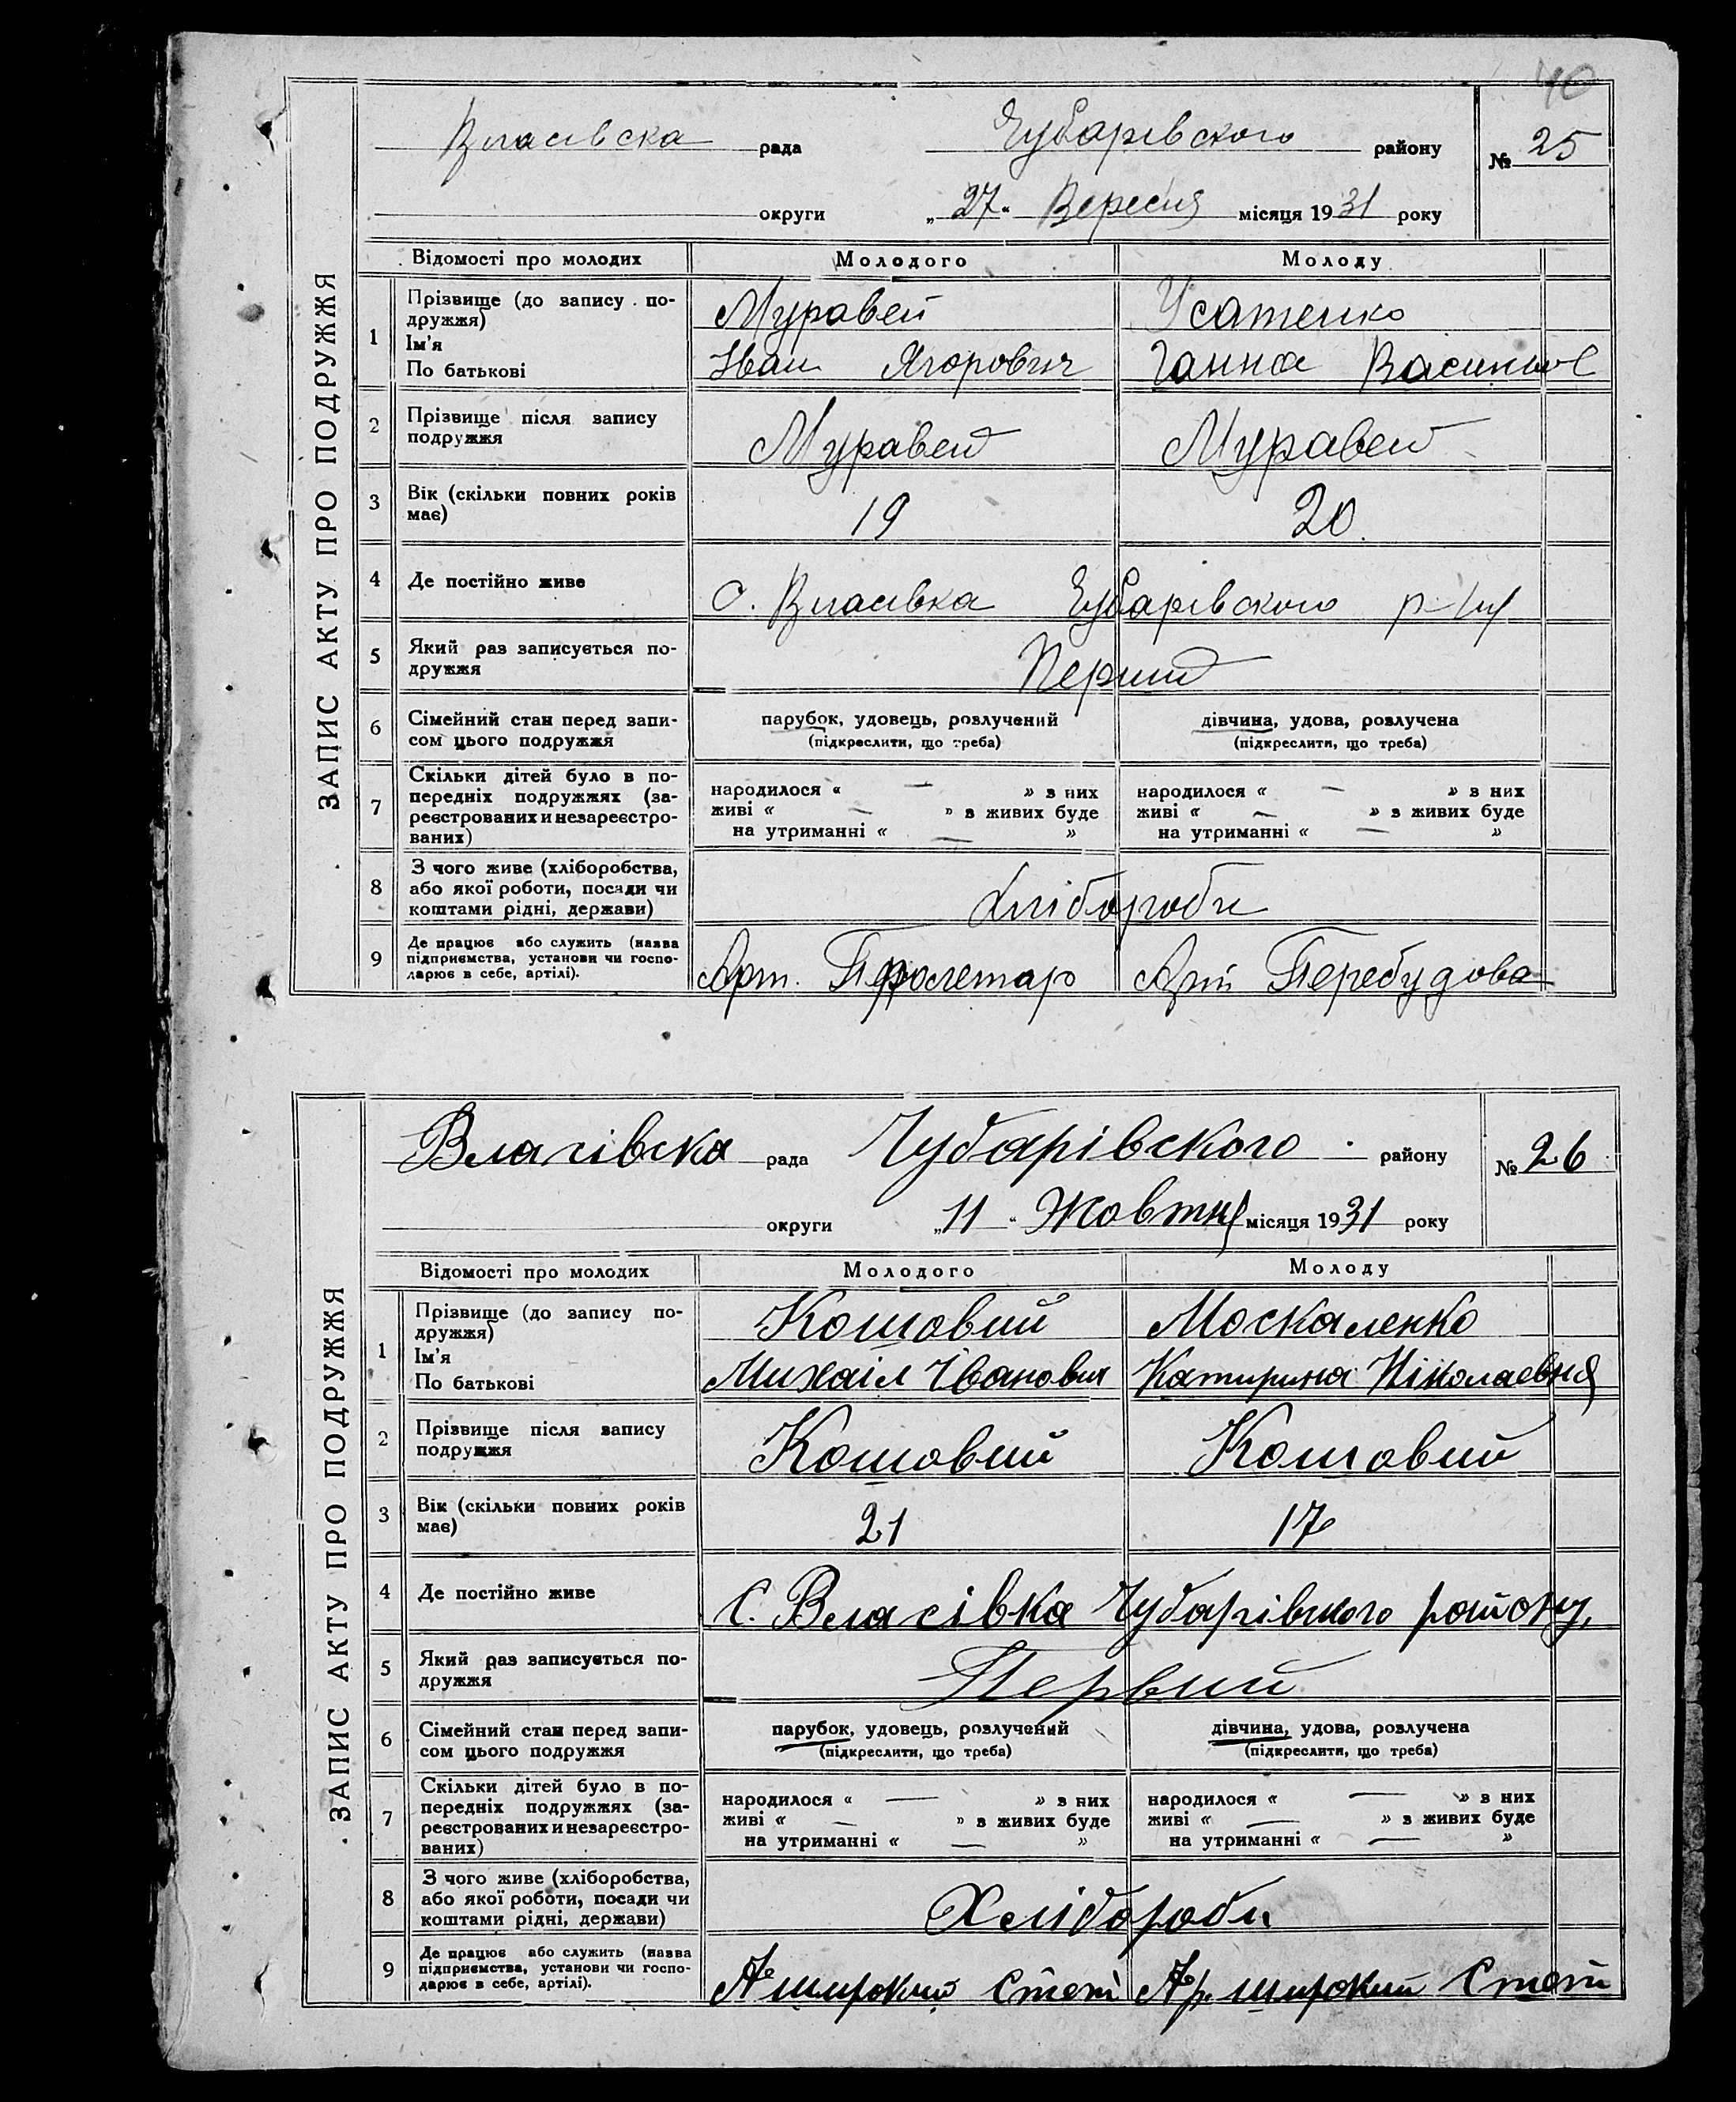 40
ЗАПИС АКТУ ПРО ПОДРУЖЖЯ
Власівска рада Чубарівского району № 25
округи „27“ Вересня місяця 1931 року
Відомості про молодих Молодого Молоду
1 Прізвище (до запису подружжя) Муравей Усатенко
Ім'я По батькові Іван Ягорович Ганна Василів
2 Прізвище після запису подружжя Муравей Муравей
3 Вік (скільки повних років має) 19 20
4 Де постійно живе с. Власівка Чубарівского р-ну
5 Який раз записується подружжя Перший
6 Сімейний стан перед записом цього подружжя парубок, удовець, розлучений дівчина, удова, розлучена
(підкреслити, що треба) (підкреслити, що треба)
7 Скільки дітей було в попередніх подружжях (зареєстрованих и незареєстрованих)
народилося « — » з них народилося « — » з них
живі « — » з живих буде живі « — » з живих буде
на утриманні « — » на утриманні « — »
8 З чого живе (хліборобства, або якої роботи, посади чи коштами рідні, держави) Хлібороби
9 Де працює або служить (назва підприємства, установи чи господарює в себе, артілі). Арт. Пролетар Арт Перебудова
ЗАПИС АКТУ ПРО ПОДРУЖЖЯ
Власівска рада Чубарівского району № 26
округи „11“ Жовтня місяця 1931 року
Відомості про молодих Молодого Молоду
1 Прізвище (до запису подружжя) Кошовий Москаленко
Ім'я По батькові Михаіл Іванович Катирина Ніколаевня
2 Прізвище після запису подружжя Кошовий Кошовий
3 Вік (скільки повних років має) 21 17
4 Де постійно живе С. Власівка Чубарівского району,
5 Який раз записується подружжя Первий
6 Сімейний стан перед записом цього подружжя парубок, удовець, розлучений дівчина, удова, розлучена
(підкреслити, що треба) (підкреслити, що треба)
7 Скільки дітей було в попередніх подружжях (зареєстрованих и незареєстрованих)
народилося « — » з них народилося « — » з них
живі « — » з живих буде живі « — » з живих буде
на утриманні « — » на утриманні « — »
8 З чого живе (хліборобства, або якої роботи, посади чи коштами рідні, держави) Хлібороби
9 Де працює або служить (назва підприємства, установи чи господарює в себе, артілі). А широкий Степ Ар. широкий Степ